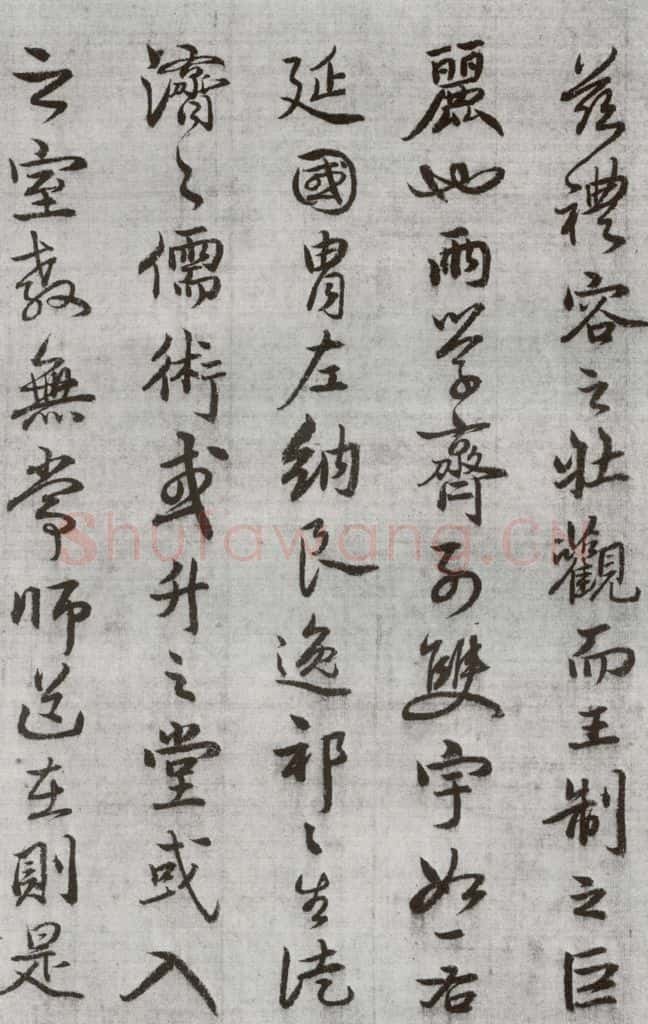 茲禮容之壯觀而王制之巨
麗也兩學齊列雙宇如一右
延國胄左納良逸祁〻生徒
濟〻儒術或升之堂或入
之室教無常師道在則是
Shufawang.cn